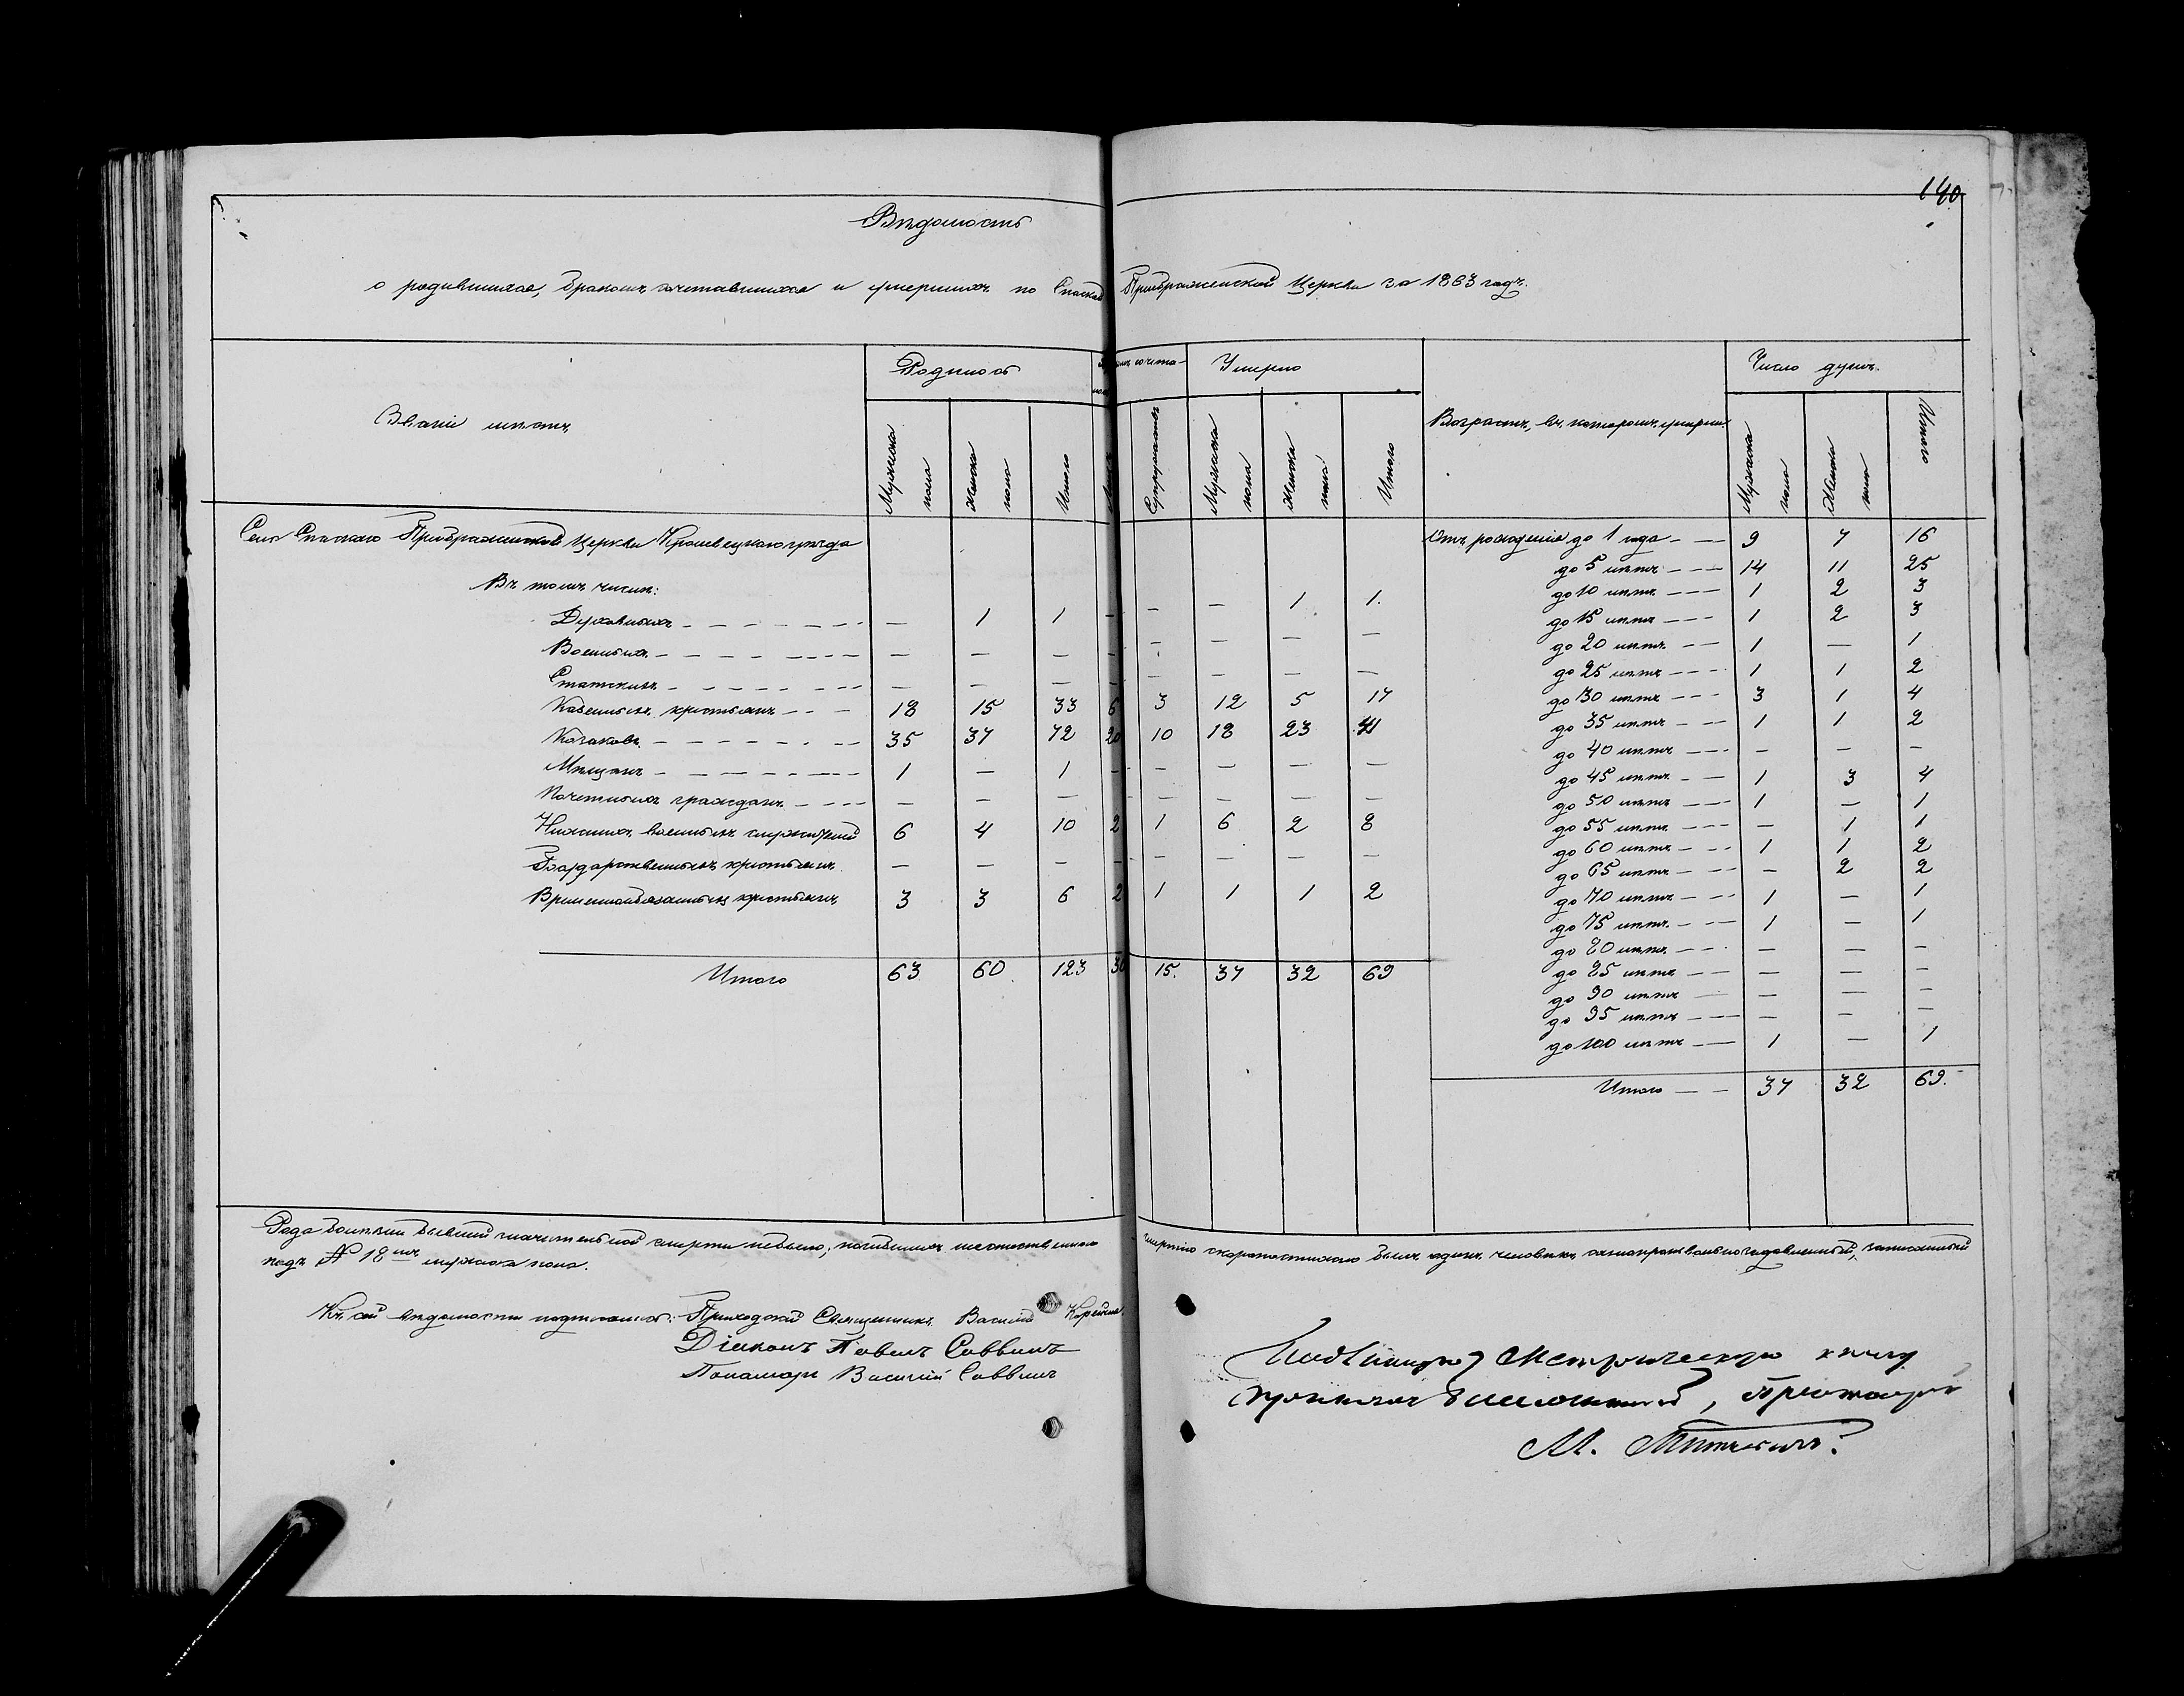 140
Вѣдомость
о родившихся, бракомъ сочетавшихся и умершихъ по Спаской Преображенской Церкви за 1863 годъ.
Званіе мѣстъ
Родилось
Мужеска пола
Женска пола
Итого
Супружествъ
Умерло
Мужеска пола
Женска пола
Итого
Возрастъ, въ которомъ умерли
Число душъ
Мужеска пола
Женска пола
Итого
Села Спаскаго Преображенской Церкви Кролевецкаго уѣзда
Въ томъ числѣ:
Духовныхъ — 1 1 — — — 1 1.
Военныхъ — — — — — — — —
Статскихъ — — — — — — — —
Казенныхъ крестьянъ 18 15 33 6 3 12 5 17
Козаковъ 35 37 72 20 10 18 23 41
Мѣщанъ 1 — 1 — — — — —
Почетныхъ гражданъ — — — — — — — —
Нижнихъ военныхъ служителей 6 4 10 2 1 6 2 8
Государственныхъ крестьянъ — — — — — — — —
Временнообязанныхъ крестьянъ 3 3 6 2 1 1 1 2
Итого 63 60 123 30 15. 37 32 69
Отъ рожденія до 1 года 9 7 16
до 5 лѣтъ 14 11 25
до 10 лѣтъ 1 2 3
до 15 лѣтъ 1 2 3
до 20 лѣтъ 1 — 1
до 25 лѣтъ 1 1 2
до 30 лѣтъ 3 1 4
до 35 лѣтъ 1 1 2
до 40 лѣтъ — — —
до 45 лѣтъ 1 3 4
до 50 лѣтъ 1 — 1
до 55 лѣтъ — 1 1
до 60 лѣтъ 1 1 2
до 65 лѣтъ — 2 2
до 70 лѣтъ 1 — 1
до 75 лѣтъ 1 — 1
до 80 лѣтъ — — —
до 85 лѣтъ — — —
до 90 лѣтъ — — —
до 95 лѣтъ — — —
до 100 лѣтъ 1 — 1
Итого 37 32 69.
Рода болѣзни бывшей значительной смерти небыло; погибшихъ неестественною смертію скоропостижно былъ одинъ человѣкъ записанный
подъ № 18мъ мужеска пола.
Къ сей вѣдомости подписались: Приходскій Священникъ Василій
Діаконъ Павелъ Саввинъ
Пономарь Василій Саввинъ
Метрическую книгу
М.